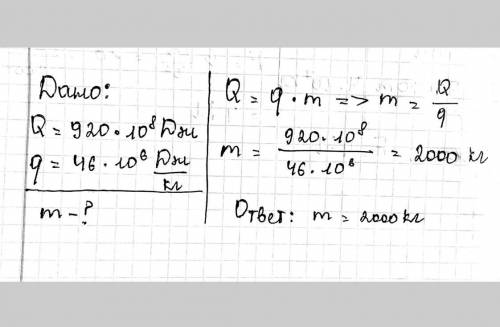 Дано:
Q = 920 · 10⁸ Дж
q = 46 · 10⁶ Дж/кг
m - ?
Q = q · m => m = Q/q
m = 920 · 10⁸ / 46 · 10⁶ = 2000 кг
Ответ: m = 2000 кг